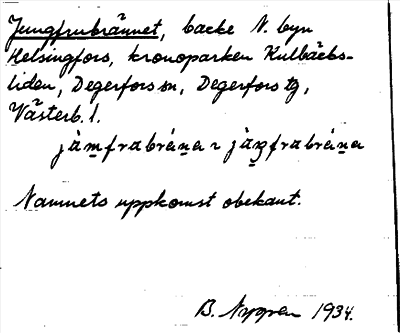 Jungfrubrännet, backe N. byn
Helsingfors, kronoparken Kulbäcks-
liden, Degerfors sn, Degerfors tg,
Västerb. l.
jàm̱frabráṉa ꝛ jàŋ̱frabráṉa
Namnets uppkomst obekant.
B. Nygren 1934.